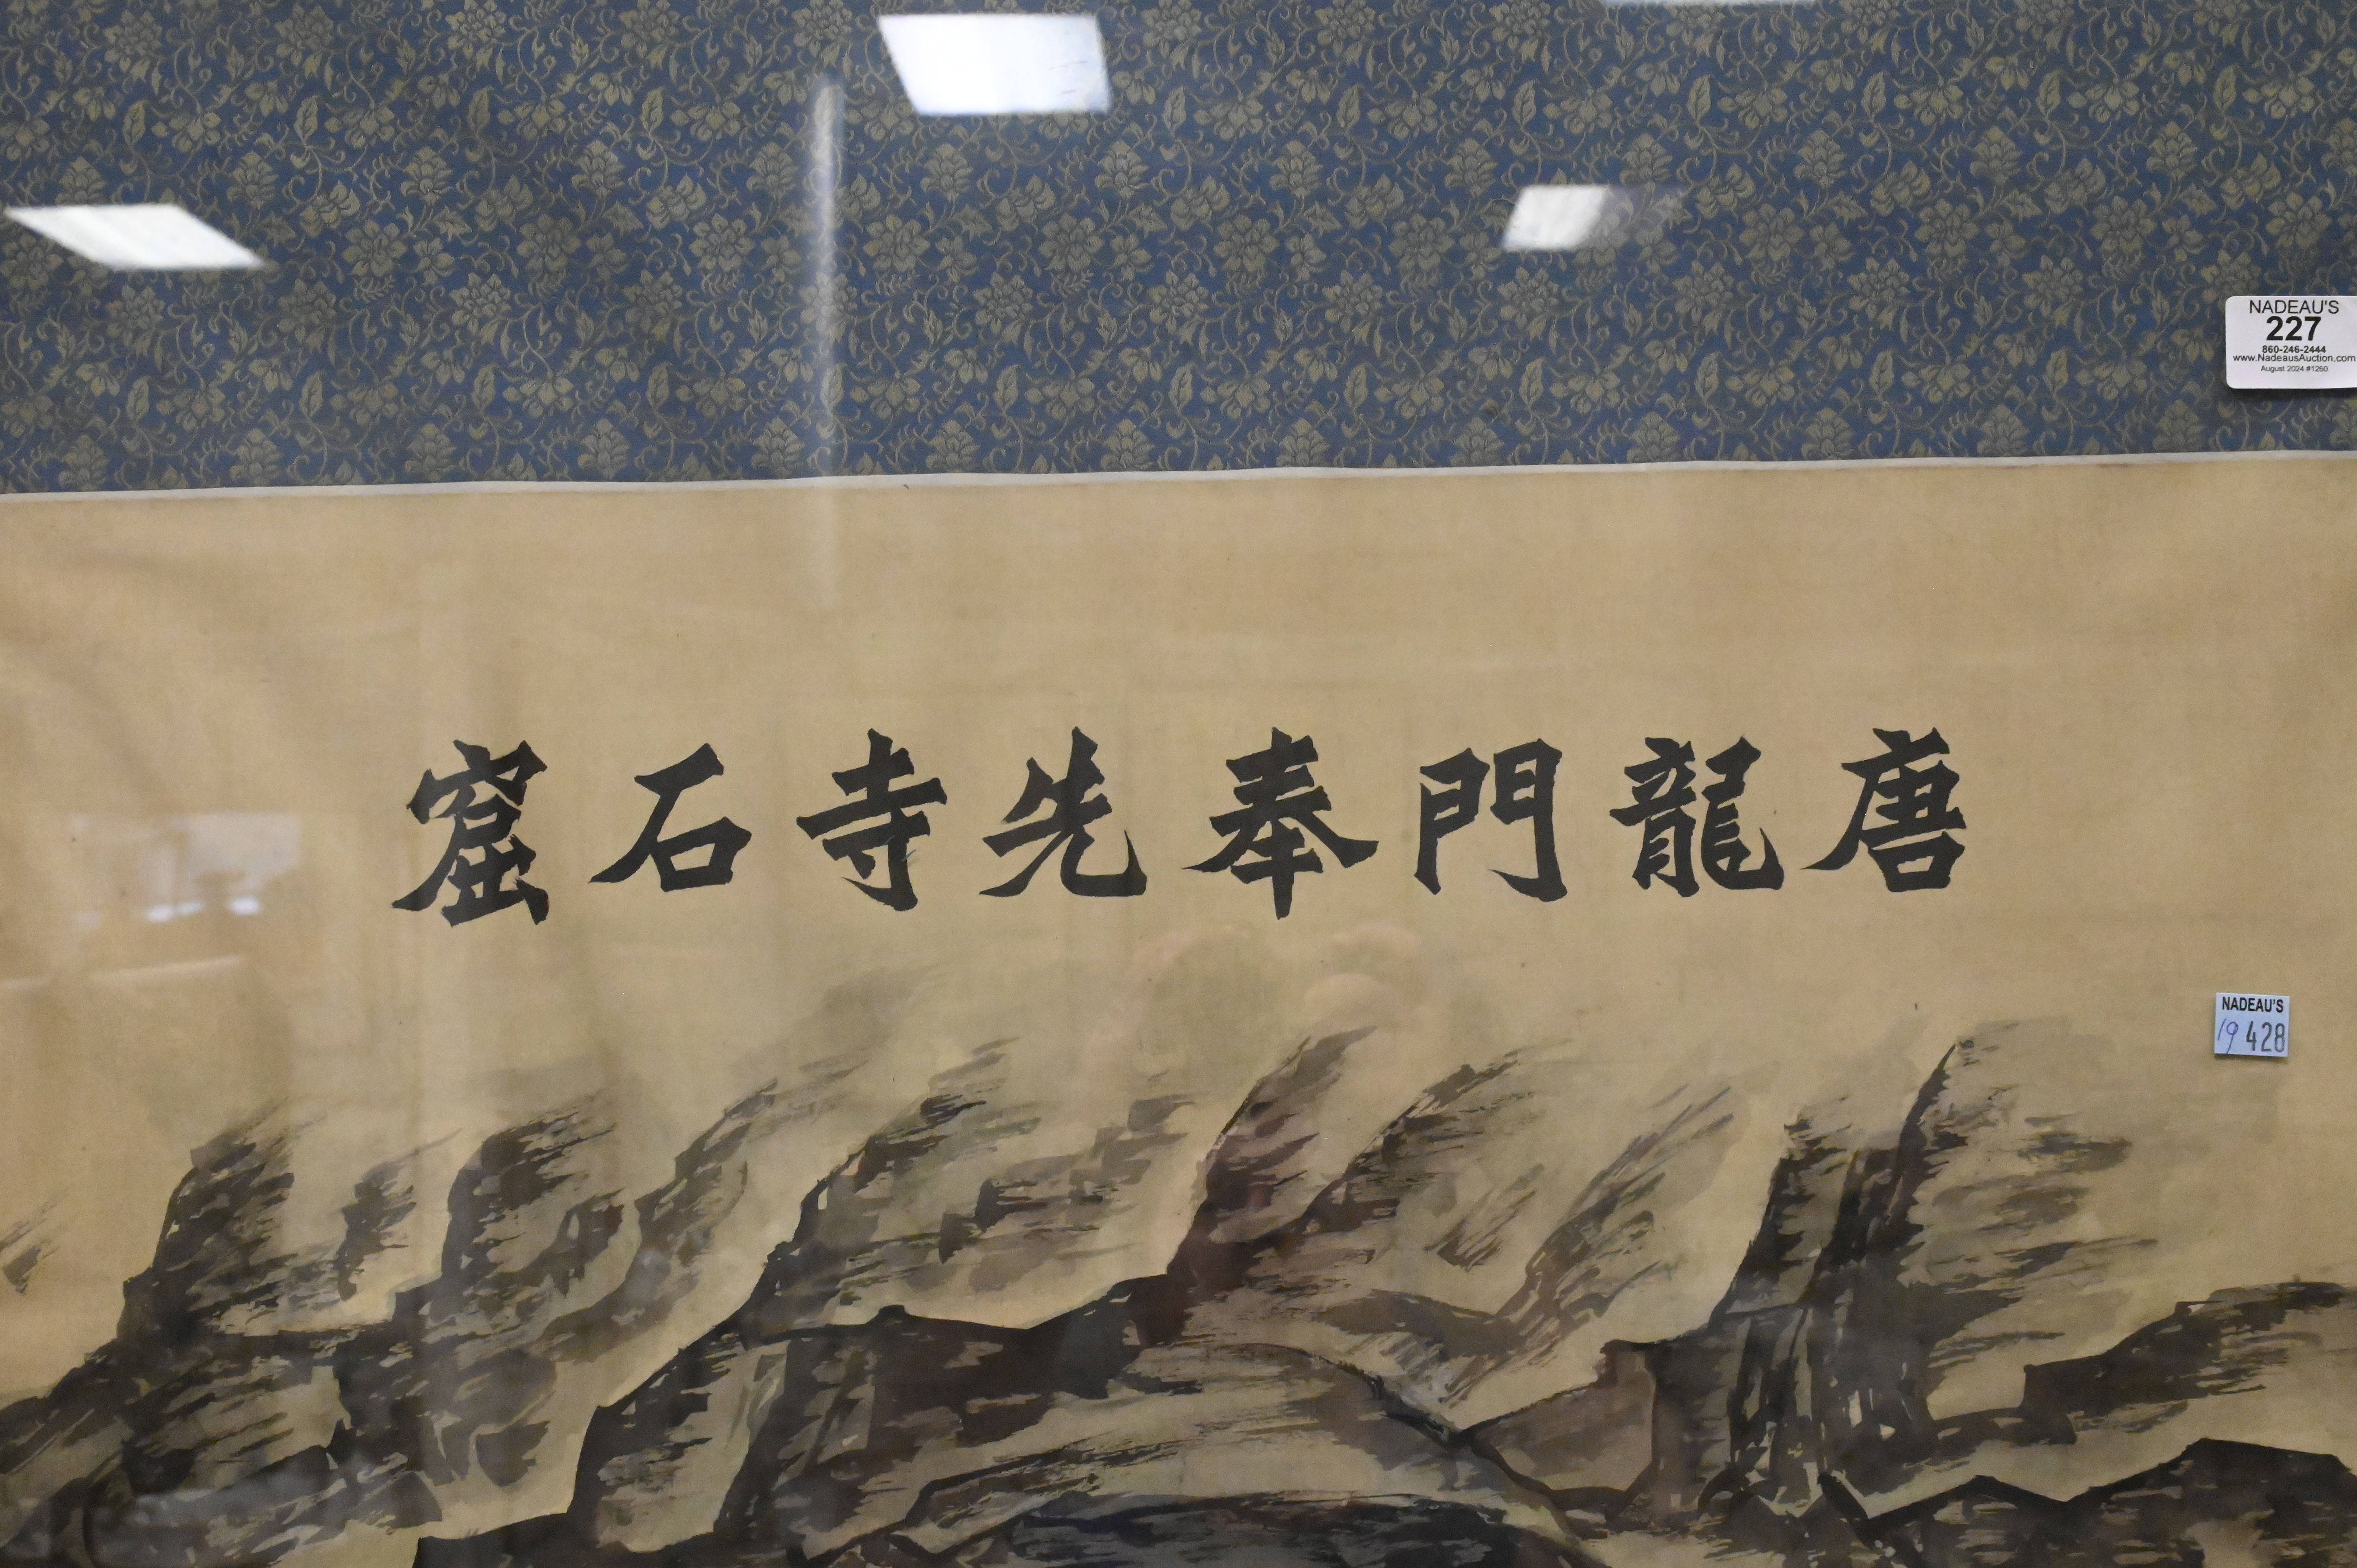 唐龍門奉先寺石窟
NADEAU'S
227
860-246-2444
www.NadeausAuction.com
August 2024 #1260
NADEAU'S
19 428